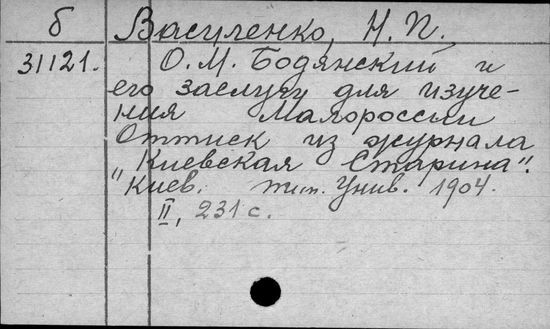 б Василенко, Н. П.
31121. О. М. Бодянский и
его заслуги для изуче-
ния Малороссии
Оттиск из журнала
"Киевская Старина".
Киев. тип. Унив. 1904.
II, 231 с.